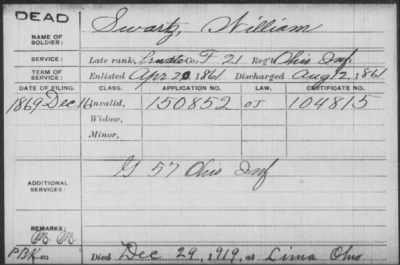 DEAD
NAME OF SOLDIER: Swartz, William
SERVICE: Late rank, Co. F 21 Reg't Ohio Inf
TERM OF SERVICE: Enlisted Apr 20 1861 Discharged Aug 12, 1861
DATE OF FILING. CLASS. APPLICATION NO. LAW. CERTIFICATE NO.
1869 Dec 16 Invalid, 150852 OJ 104815
Widow,
Minor,
ADDITIONAL SERVICES: G 57 Ohio Inf
REMARKS:
Died Dec 29, 1919, at Lima Ohio